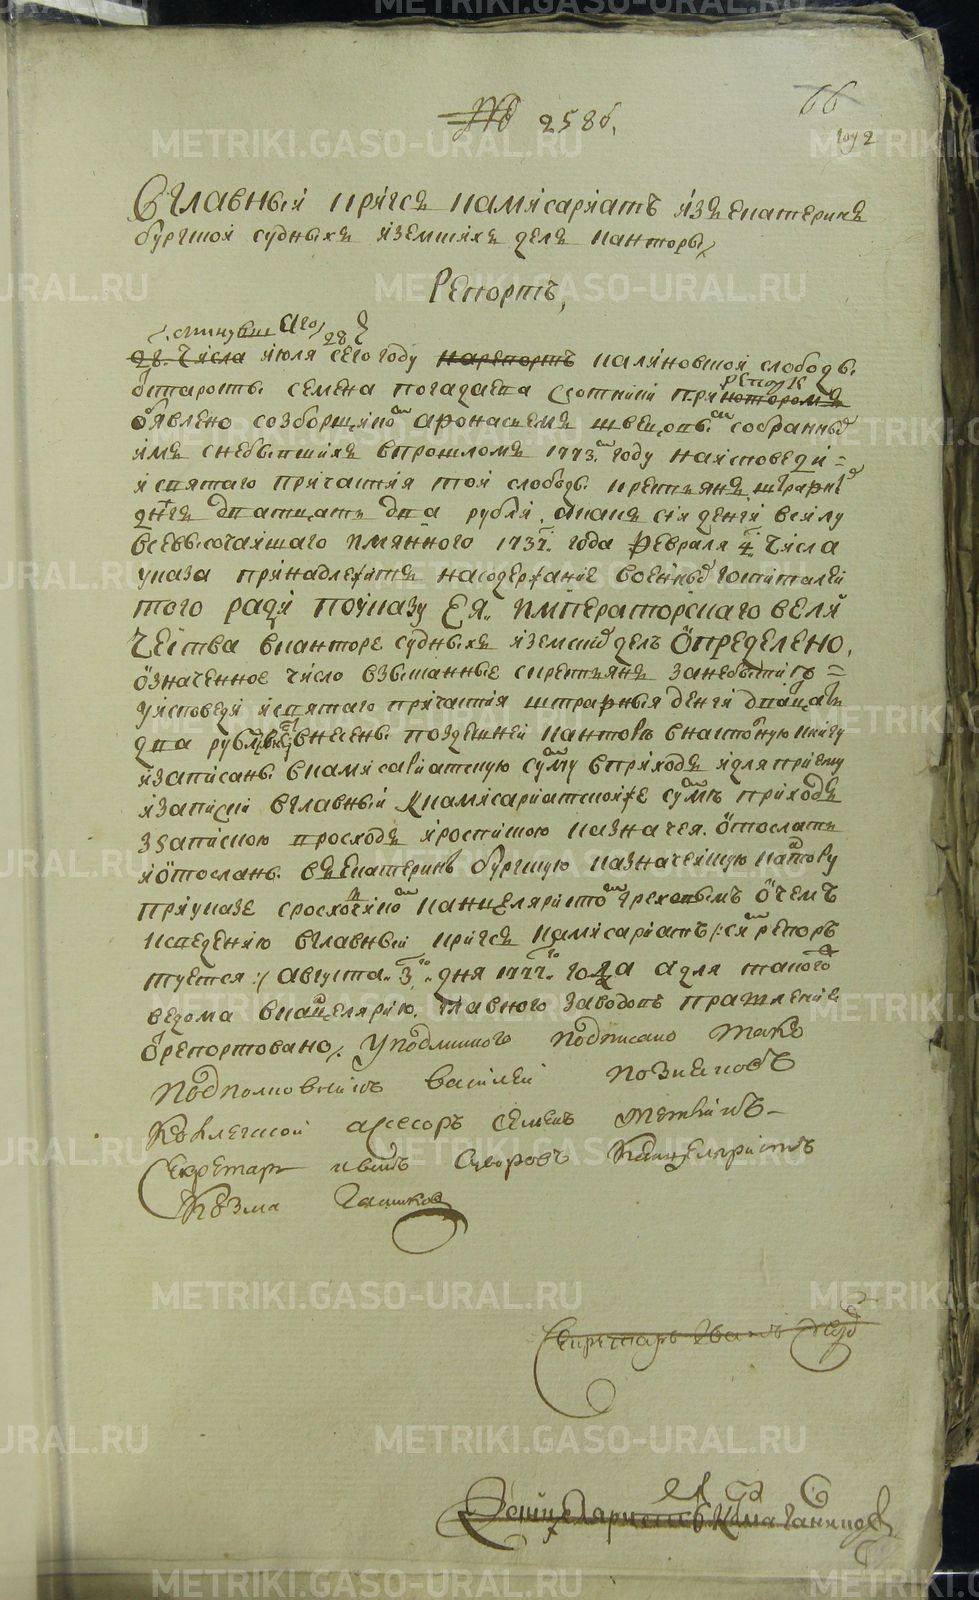 66
№ 2586.
Вглавныи кригсъ камисариатъ изъ екатерин
бургскои судныхъ иземскихъ делъ канторы
Репортъ,
минувшаго 28
28. числа июля сего году нарепортъ калиновскои слободы
старосты семена погадаева сотники при которомъ
обявлено созборщикомъ афонасьемъ швецовымъ собранныя
имъ снебывшихъ впрошломъ 1773 году наисповеди
исвятаго причастия тои слободы крестьянъ штрафныхъ
денегъ дватцать два рубли, акакъ сия денги всилу
всевысочаишаго имянного 1737 года февраля 4 числа
указа принадлежитъ насодержание военныхъ гошпиталеи
того ради поуказу Ея императорскаго вели
чества вканторе судныхъ иземскихъ делъ определено,
означенное число взысканные скрестьянъ занебытие
уисповеди исвятаго причастия штрафныя денги дватцать
два рубли внесены поздешнеи канторе внастоящую книгу
изаписаны вкамисариатскую сумму вприходъ идляприему
изаписки вглавныи ккамисариатскоиже сумме приходъ
ззапискою врасходъ иросискою казначея. отослать
иотосланы. въекатеринбургскую казначеискую кантору
приуказе срасхотчикомъ канцеляристомъ греховымъ очемъ
кспедению вглавныи кригсъ камисариатъ /: симъ репор
туется :/ августа 3 дня 1777 года адля такого
ведома вканцелярию, главного заводовъ правления
орепортовано /. Уподлинного подписано тако
подполковникъ василеи познековъ
Колежскои асесоръ семенъ
Секретарь иванъ суворовъ Канцеляристъ
Козма
Секретарь Иванъ
Канцеляристъ Козма